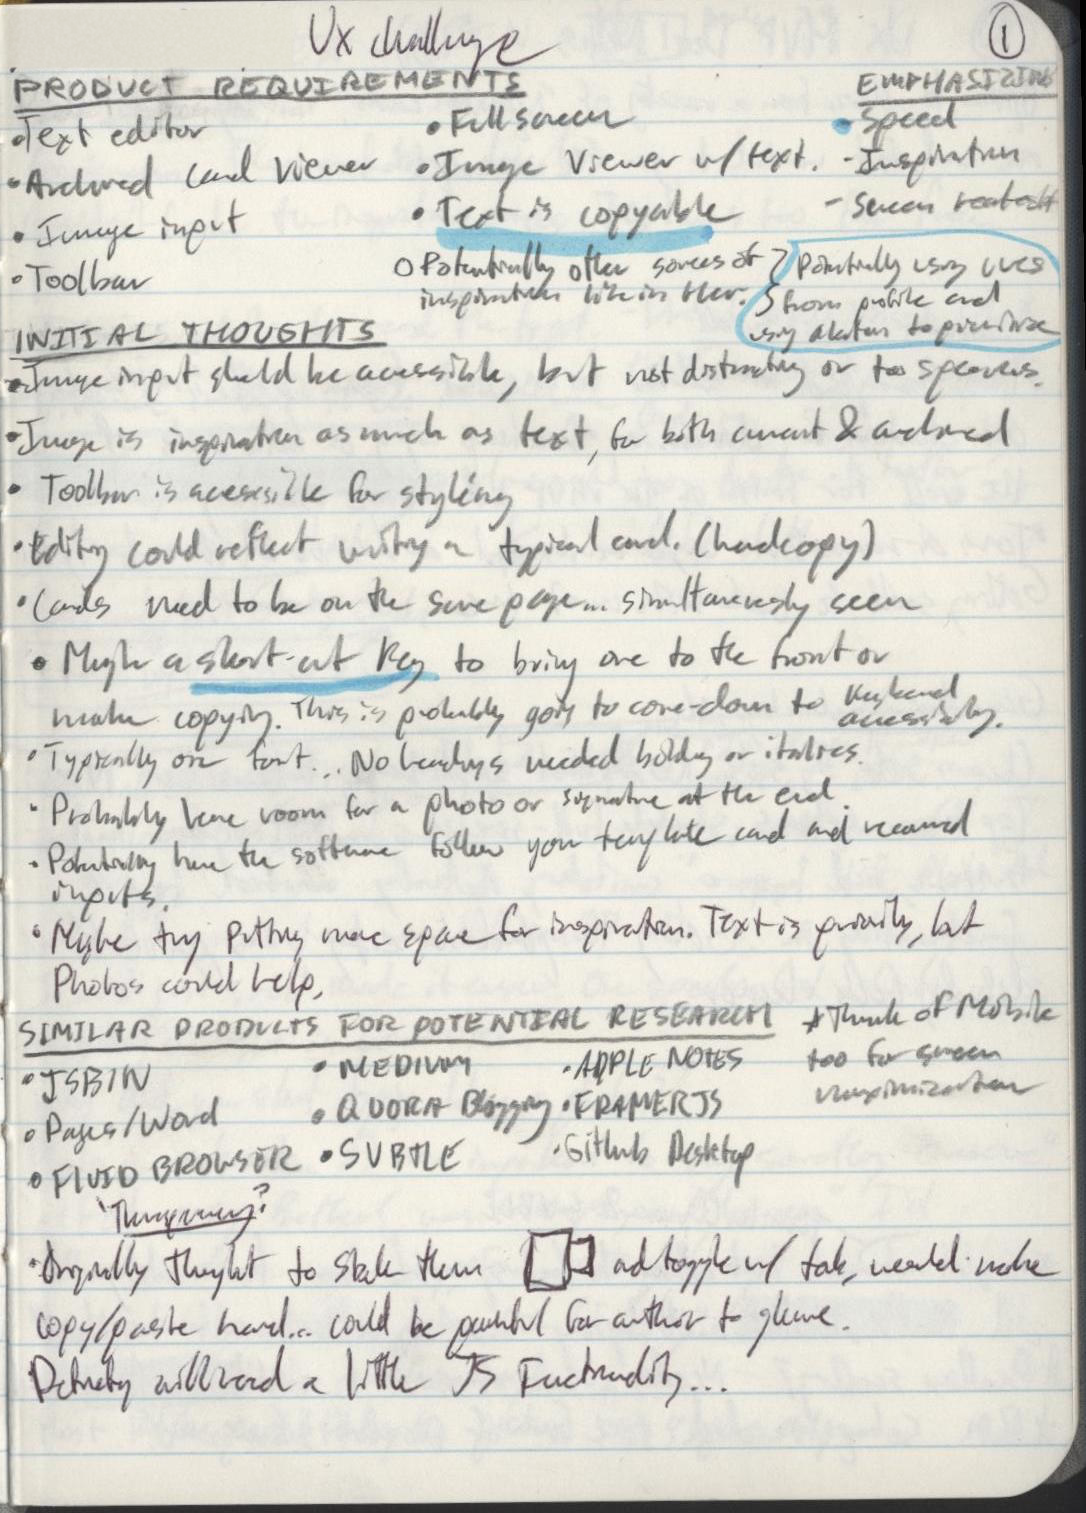 UX challenge
1
PRODUCT REQUIREMENTS
• Text editor
• Archived Card Viewer
• Image input
• Toolbar
• Full screen
• Image Viewer w/ text.
• Text is copyable
O Potentially other sources of
inspiration like inther.
EMPHASIZING
• Speed
- Inspiration
- Screen
Potentially using lives
from profile and
using to prioritize
INITIAL THOUGHTS
• Image input should be accessible, but not distracting or too
• Image is inspiration as much as text, for both current & archived
• Toolbar is accessible for styling
• Editing could reflect writing a typical card. (hardcopy)
• Cards need to be on the same page... simultaneously seen
• Maybe a short-cut key to bring one to the front or
make copying. This is probably going to come-down to Keyboard
accessibility.
• Typically one font... No headings needed bolding or italics.
• Probably leave room for a photo or signature at the end.
• Potentially have the software follow your template card and
inputs.
• Maybe try putting more space for inspiration. Text is priority, but
Photos could help,
SIMILAR PRODUCTS FOR POTENTIAL RESEARCH
• JSBIN
• Pages/Word
• FLUID BROWSER
• MEDIUM
• QUORA Blogging
• SVBTLE
• APPLE NOTES
• FRAMERJS
• Github Desktop
* Think of Mobile
too for screen
maximization
'Transparency?'
• Originally thought to stack them and toggle w/ tab, would make
copy/paste hard... could be painful for author to glance.
Definitely will need a little JS Functionality...